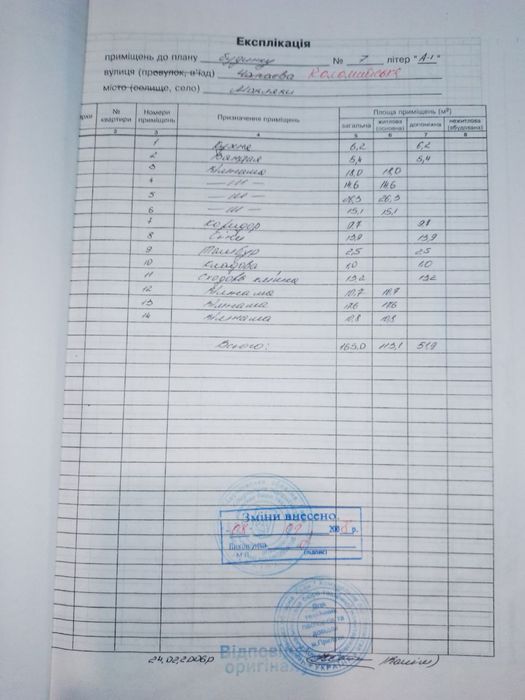 Експлікація
приміщень до плану будинку № 7 літер "А-1"
вулиця (провулок, в'їзд) Чапаєва Коломийська
місто (селище, село)
№ квартири Номери приміщень Призначення приміщень Площа приміщень (м²)
загальна житлова (основна) допоміжна нежитлова (вбудована)
2 3 4 5 6 7 8
1 Кухня 6,2 6,2
2 Ванная 5,4 5,4
3 Житлова 18,0 18,0
4 — ııı — 14,6 14,6
5 — ııı — 26,3 26,3
6 — ııı — 15,1 15,1
7 Коридор 9,7 9,7
8 13,9 13,9
9 Тамбур 2,5 2,5
10 Кладова 1,0 1,0
11 Сходова клітка 13,2 13,2
12 Житлова 10,7 10,7
13 Житлова 17,6 17,6
14 Житлова 10,8 10,8
Всього: 165,0 113,1 51,9
Зміни внесено.
08 09 2008 р.
Виконувала
М.П. (підпис)
Відповідає
оригіналу
24.02.2006р